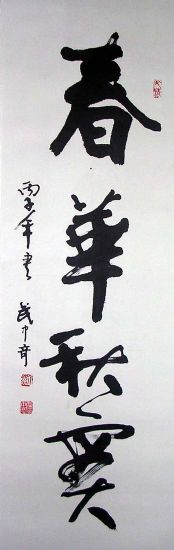 春華秋實
丙子年書 武中奇